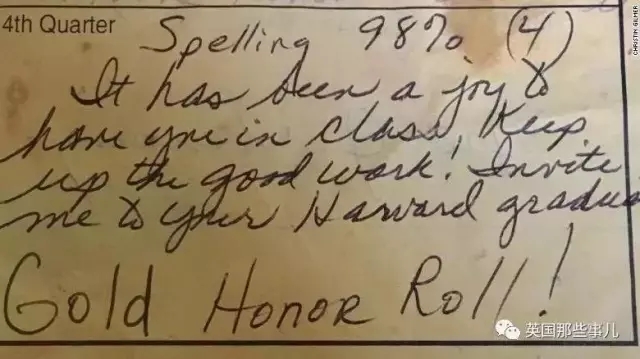 4th Quarter
Spelling 98% (4)
It has been a joy to
have you in class. Keep
up the good work! Invite
me to your Harvard gradua
Gold Honor Roll!
CHRISTIN GILMER
英国那些事儿